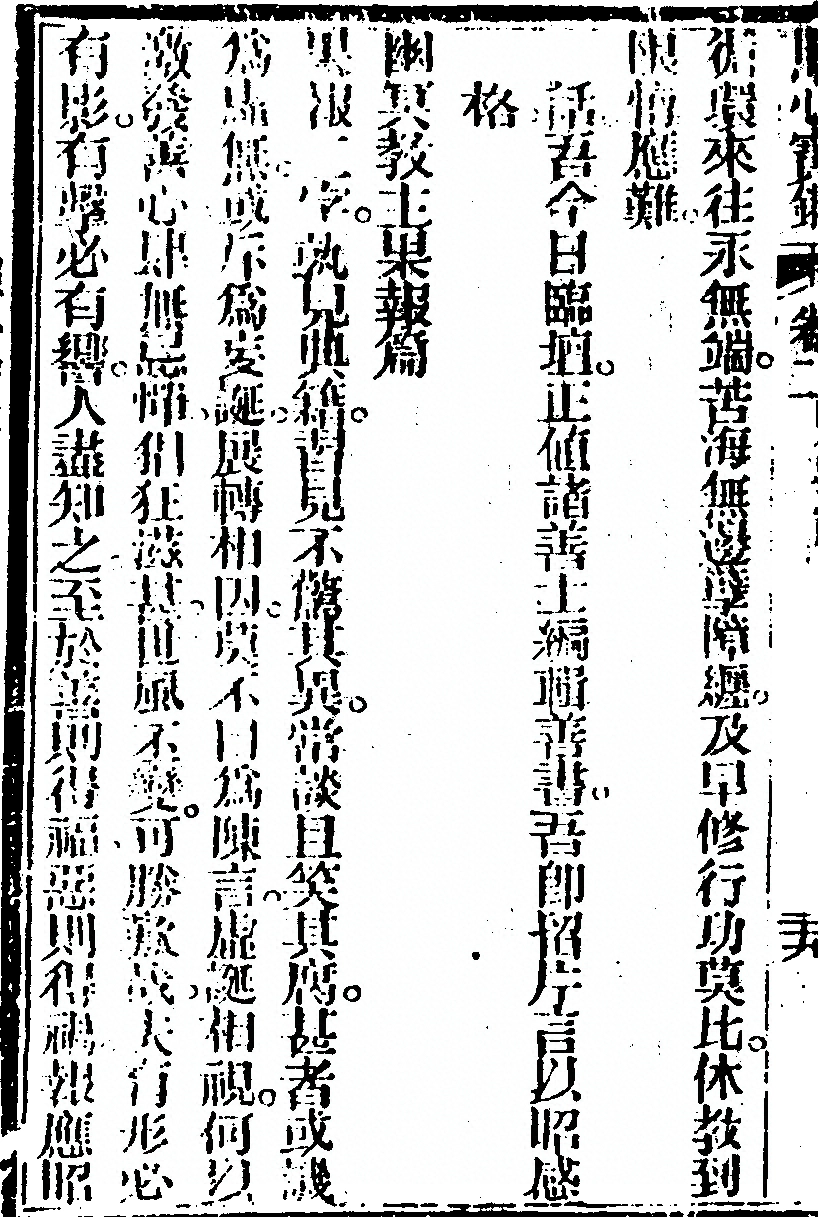 循環來往永無端。苦海無邊孽障纏。及早修行功莫比。休教到
限悔應難。
話吾今日臨壇。正値諸善士編輯善書。吾卽招片言以昭感
格
幽冥教主果報篇
果報二字。孰見典籍。習見不驚其異。常談且笑其腐。甚者或譏
爲無。或斥爲妄誕。展轉相因。莫不曰爲陳言。虛誕相視。何以
激發善心。肆無忌憚。猖狂滋甚。世風不變。可勝歎哉。夫有形必
有影。有聲必有響。人盡知之。至於善則得福。惡則得禍。報應昭